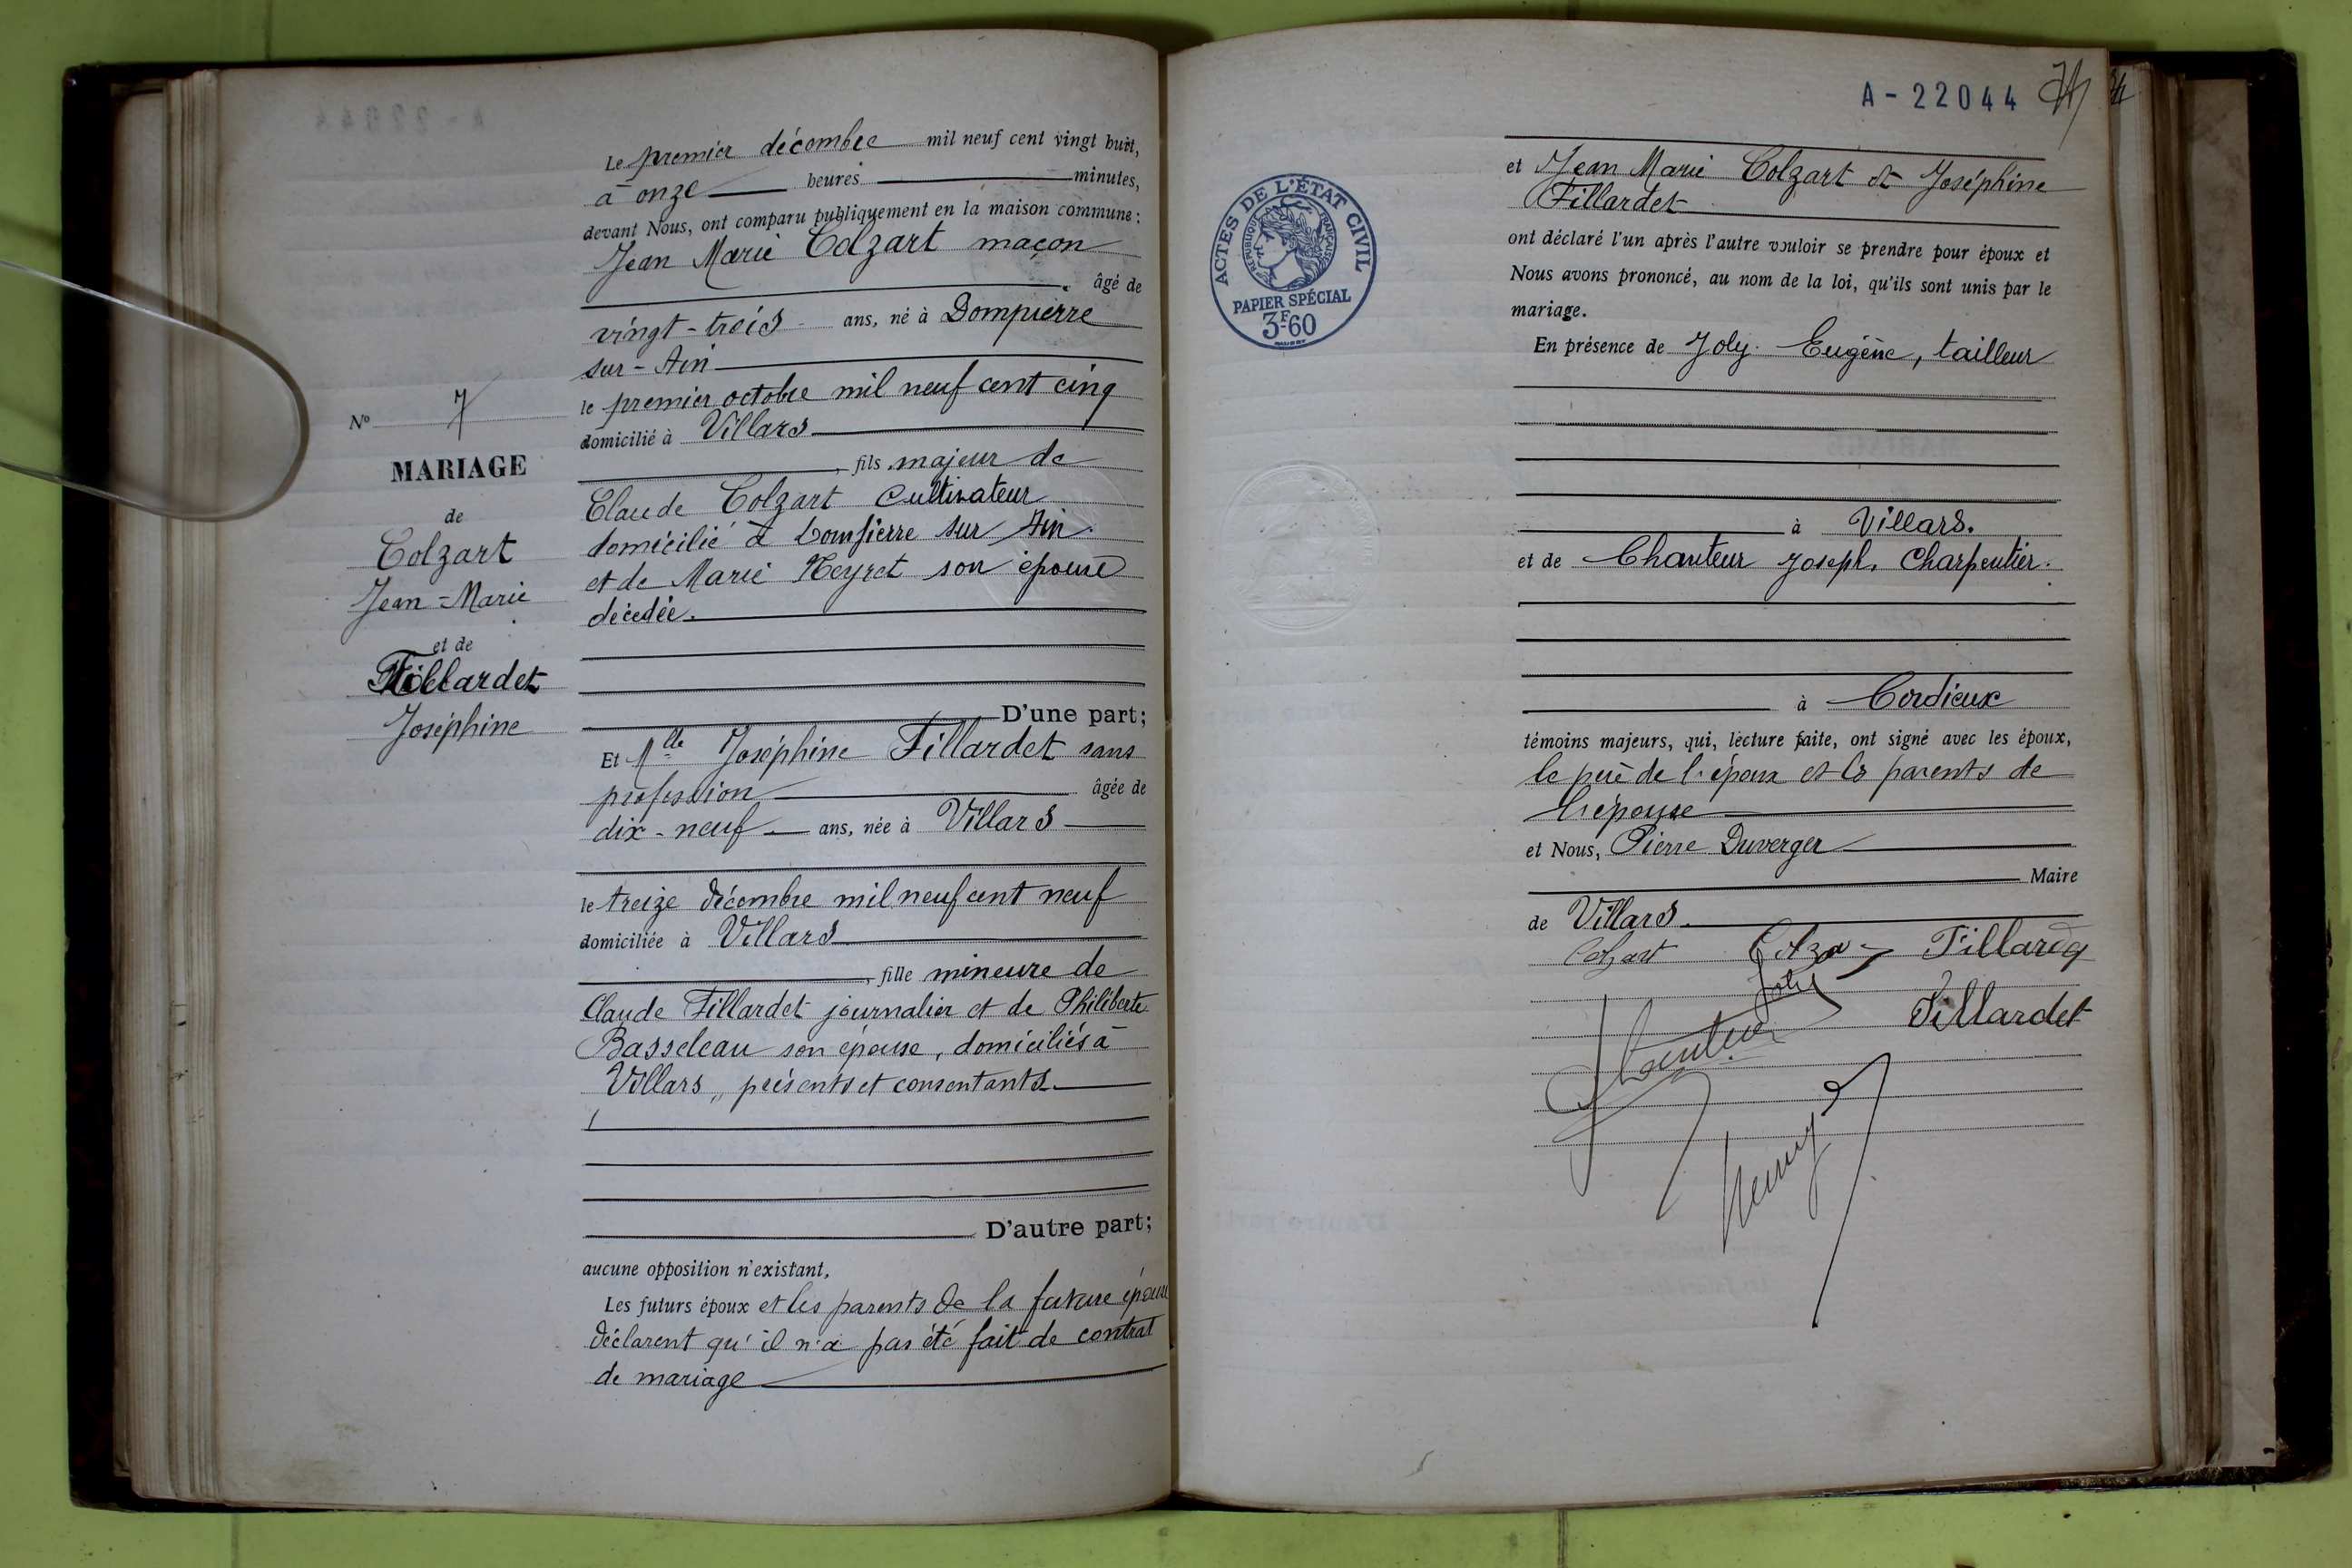 Le premier décembre mil neuf cent vingt huit,
à onze heures minutes,
devant Nous, ont comparu publiquement en la maison commune:
Jean Marie Colzart maçon
âgé de
vingt-trois ans, né à Dompierre
sur-Ain
le premier octobre mil neuf cent cinq
domicilié à Villars
, fils majeur de
Claude Colzart Cultivateur
domicilié à Dompierre sur Ain
et de Marie Neyret son épouse
décédée.
D'une part;
Et Mlle Joséphine Fillardet sans
profession âgée de
dix-neuf ans, née à Villars
le treize décembre mil neuf cent neuf
domiciliée à Villars
, fille mineure de
Claude Fillardet journalier et de Philiberte
Basseleau son épouse, domiciliés à
Villars, présents et consentants
D'autre part;
aucune opposition n'existant,
Les futurs époux et les parents de la future épouse
déclarent qu'il n'a pas été fait de contrat
de mariage
No 7
MARIAGE
de
Colzart
Jean-Marie
et de
Fillardet
Joséphine
A-22044
et Jean Marie Colzart et Joséphine
Fillardet
ont déclaré l'un après l'autre vouloir se prendre pour époux et
Nous avons prononcé, au nom de la loi, qu'ils sont unis par le
mariage.
En présence de Joly Eugène, tailleur
à Villars.
et de Chanteur Joseph, Charpentier.
à Cordieux
témoins majeurs, qui, lecture faite, ont signé avec les époux,
le père de l'époux et les parents de
l'épouse
et Nous, Pierre Duverger
Maire
de Villars.
Colzart Colzart Fillardet
Joly
Chanteur Fillardet
ACTES DE L'ÉTAT CIVIL
RÉPUBLIQUE FRANÇAISE
PAPIER SPÉCIAL
3F-60